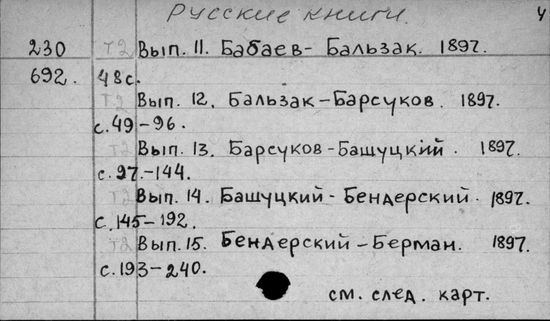 Русские книги. 4
230 Т2 Вып. 11. Бабаев - Бальзак. 1897.
692. 48с.
Т2 Вып. 12. Бальзак - Барсуков. 1897.
с. 49 - 96.
Т2 Вып. 13. Барсуков - Башуцкий. 1897.
с. 97. - 144.
Т2 Вып. 14. Башуцкий - Бендерский. 1897.
с. 145 - 192.
Т2 Вып. 15. Бендерский - Берман. 1897.
с. 193 - 240.
см. след. карт.